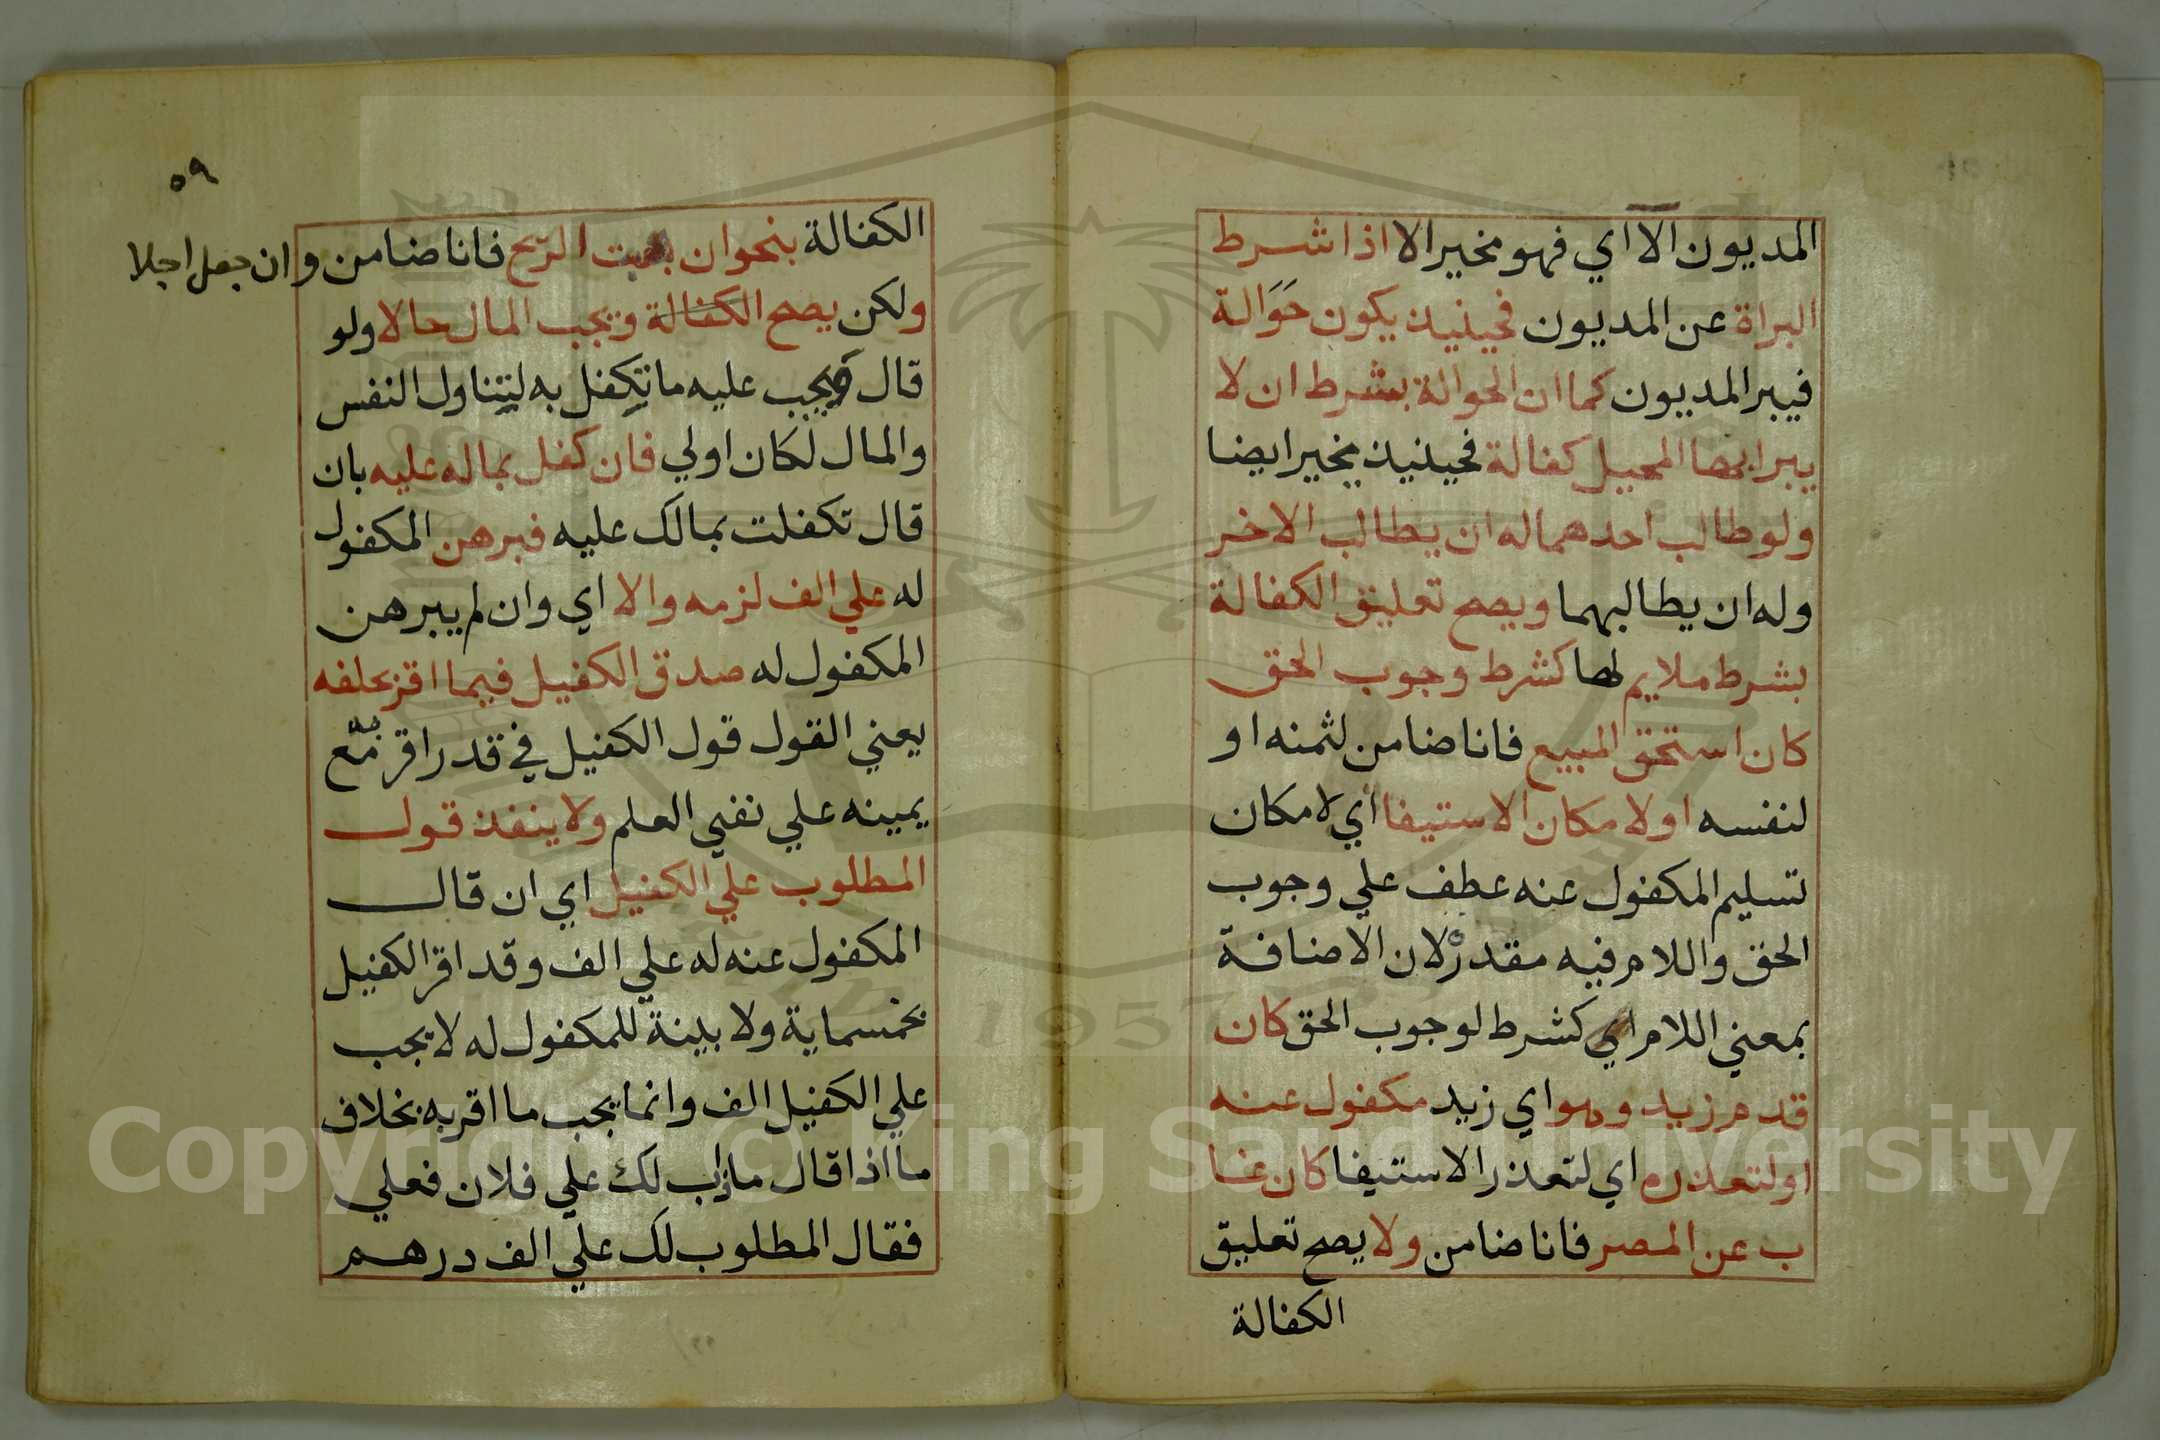 المديون الا اي فهو مخير الا اذا شرط
البراة عن المديون فحينيذ يكون حَوَالة
فيبر المديون كما ان الحوالة بشرط ان لا
يبر ايضا المحيل كفالة فحينيذ يخير ايضا
ولو طالب احدهما له ان يطالب الاخر
وله ان يطالبهما ويصح تعليق الكفالة
بشرط ملايم لها كشرط وجوب الحق
كان استحق المبيع فانا ضامن لثمنه او
لنفسه او لامكان الاستيفا اي لامكان
تسليم المكفول عنه عطف علي وجوب
الحق واللام فيه مقدرة لان الاضافة
بمعني اللام اي كشرط لوجوب الحق كان
قدم زيد وهو اي زيد مكفول عنه
او لتعذره اي لتعذر الاستيفا كان غا
ب عن المصر فانا ضامن ولا يصح تعليق
الكفالة
٥٩
الكفالة بنحو ان هبت الريح فانا ضامن وان جعل اجلا
ولكن يصح الكفالة ويجب المال حالا ولو
قال ويجب عليه ما تكفل به ليتناول النفس
والمال لكان اولي فان كفل بماله عليه بان
قال تكفلت بمالك عليه فبرهن المكفول
له علي الف لزمه والا اي وان لم يبرهن
المكفول له صدق الكفيل فيما اقر بحلفه
يعني القول قول الكفيل في قدر اقر مع
يمينه علي نفي العلم ولا ينفذ قول
المطلوب علي الكفيل اي ان قال
المكفول عنه له علي الف وقد اقر الكفيل
بخمسماية ولا بينة للمكفول له لا يجب
علي الكفيل الف وانما يجب ما اقر به بخلاف
ما اذا قال ماذاب لك علي فلان فعلي
فقال المطلوب لك علي الف درهم
Copyright © King Saud University
1957